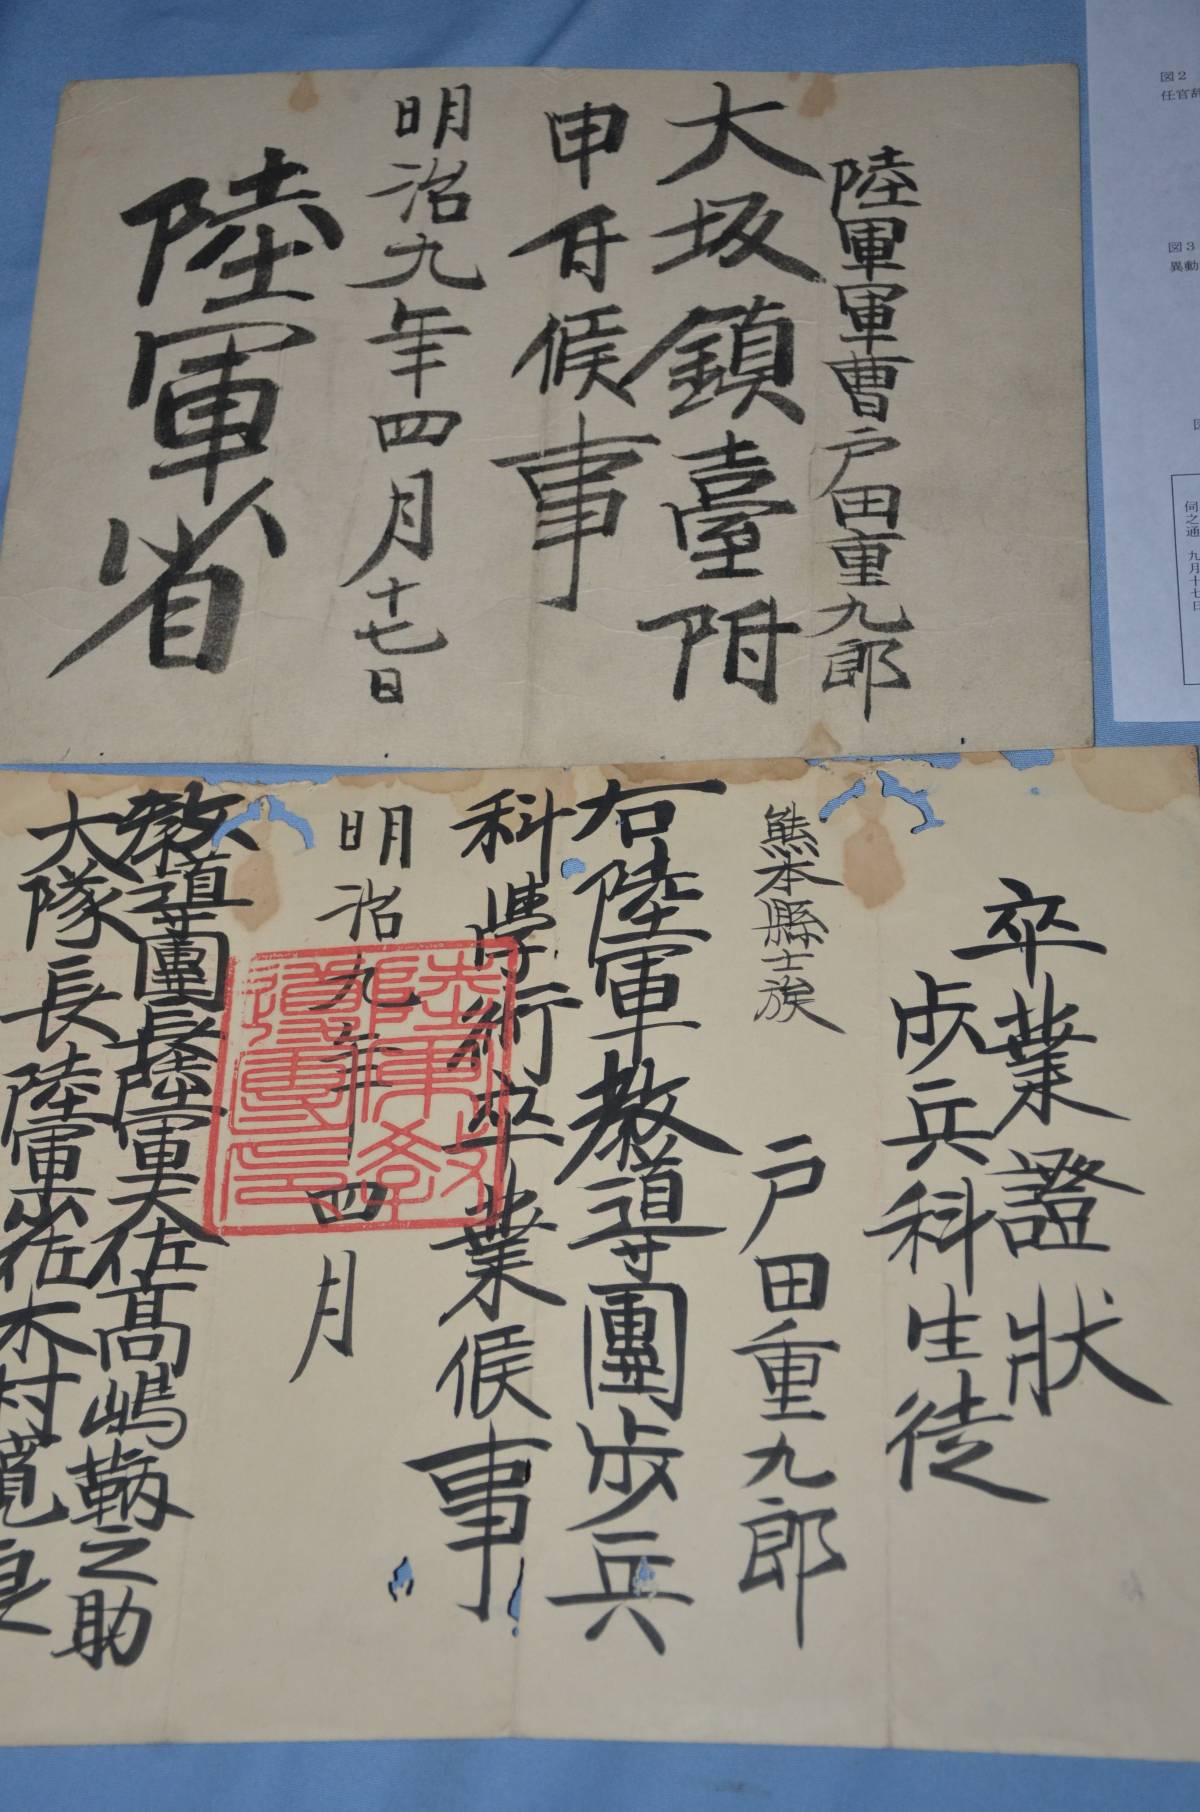 陸軍軍曹戸田重九郎
大坂鎮臺附
申付候事
明治九年四月十七日
陸軍省
卒業證狀
歩兵科生徒
熊本縣士族
戸田重九郎
右陸軍教導團歩兵
科學術卒業候事
明治九年四月
陸軍教導團印
教導團長陸軍大佐髙嶋鞆之助
大隊長陸軍少佐木村寛良
図2
任官辞
図3
異動
伺之通
九月十七日